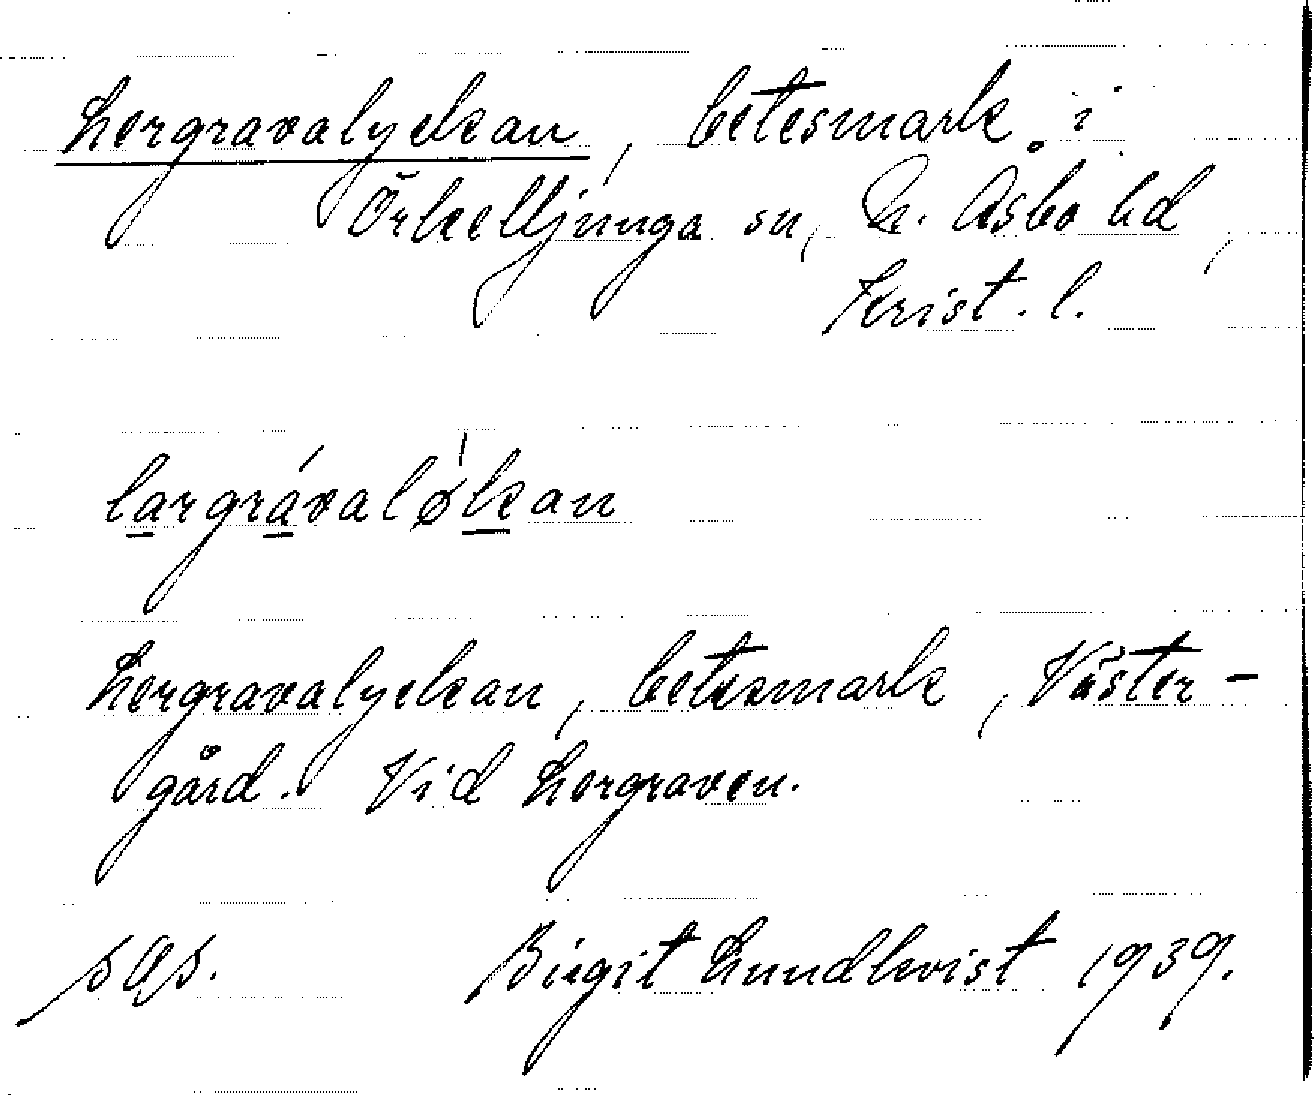 Lergravalyckan, betesmark i
Örkelljunga sn, N. Åsbo hd,
Krist. l.
largrávaløkan
Lergravalyckan, betesmark, Väster-
gård. Vid Lergraven.
Birgit Lundkvist 1939.